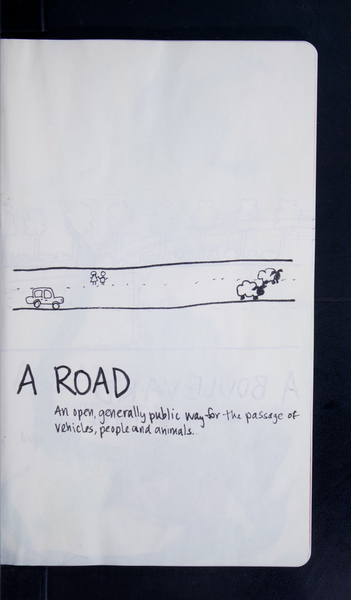 A ROAD
An open, generally public way for the passage of
vehicles, people and animals.